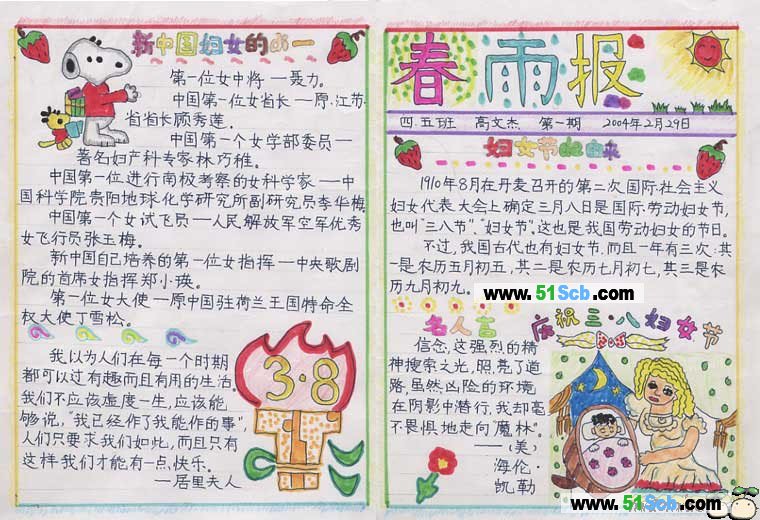 新中国妇女的第一
第一位女中将—聂力。
中国第一位女省长—原·江苏
省省长顾秀莲。
中国第一个女学部委员—
著名妇产科专家林巧稚。
中国第一位进行南极考察的女科学家—中
国科学院贵阳地球化学研究所副研究员李华梅
中国第一个女试飞员—人民解放军空军优秀
女飞行员张玉梅。
新中国自己培养的第一位女指挥—中央歌剧
院的首席女指挥郑小瑛。
第一位女大使—原中国驻荷兰王国特命全
权大使丁雪松。
我以为人们在每一个时期
都可以过有趣而且有用的生活。
我们不应该虚度一生,应该能
够说,“我已经作了我能作的事”,
人们只要求我们如此,而且只有
这样我们才能有一点快乐。
—居里夫人
3·8
春雨报
四.五班 高文杰 第一期 2004年2月29日
妇女节的由来
1910年8月在丹麦召开的第二次国际社会主义
妇女代表大会上确定三月八日是国际劳动妇女节,
也叫“三八节”、“妇女节”。这也是我国劳动妇女的节日。
不过,我国古代也有妇女节.而且一年有三次:其
一是农历五月初五,其二是农历七月初七,其三是农
历九月初九。
www.51Scb.com
名人言
信念,这强烈的精
神搜索之光,照亮了道
路,虽然凶险的环境
在阴影中潜行,我却毫
不畏惧地走向“魔林”。
——(美)
海伦·
凯勒
庆祝三·八妇女节
www.51Scb.com